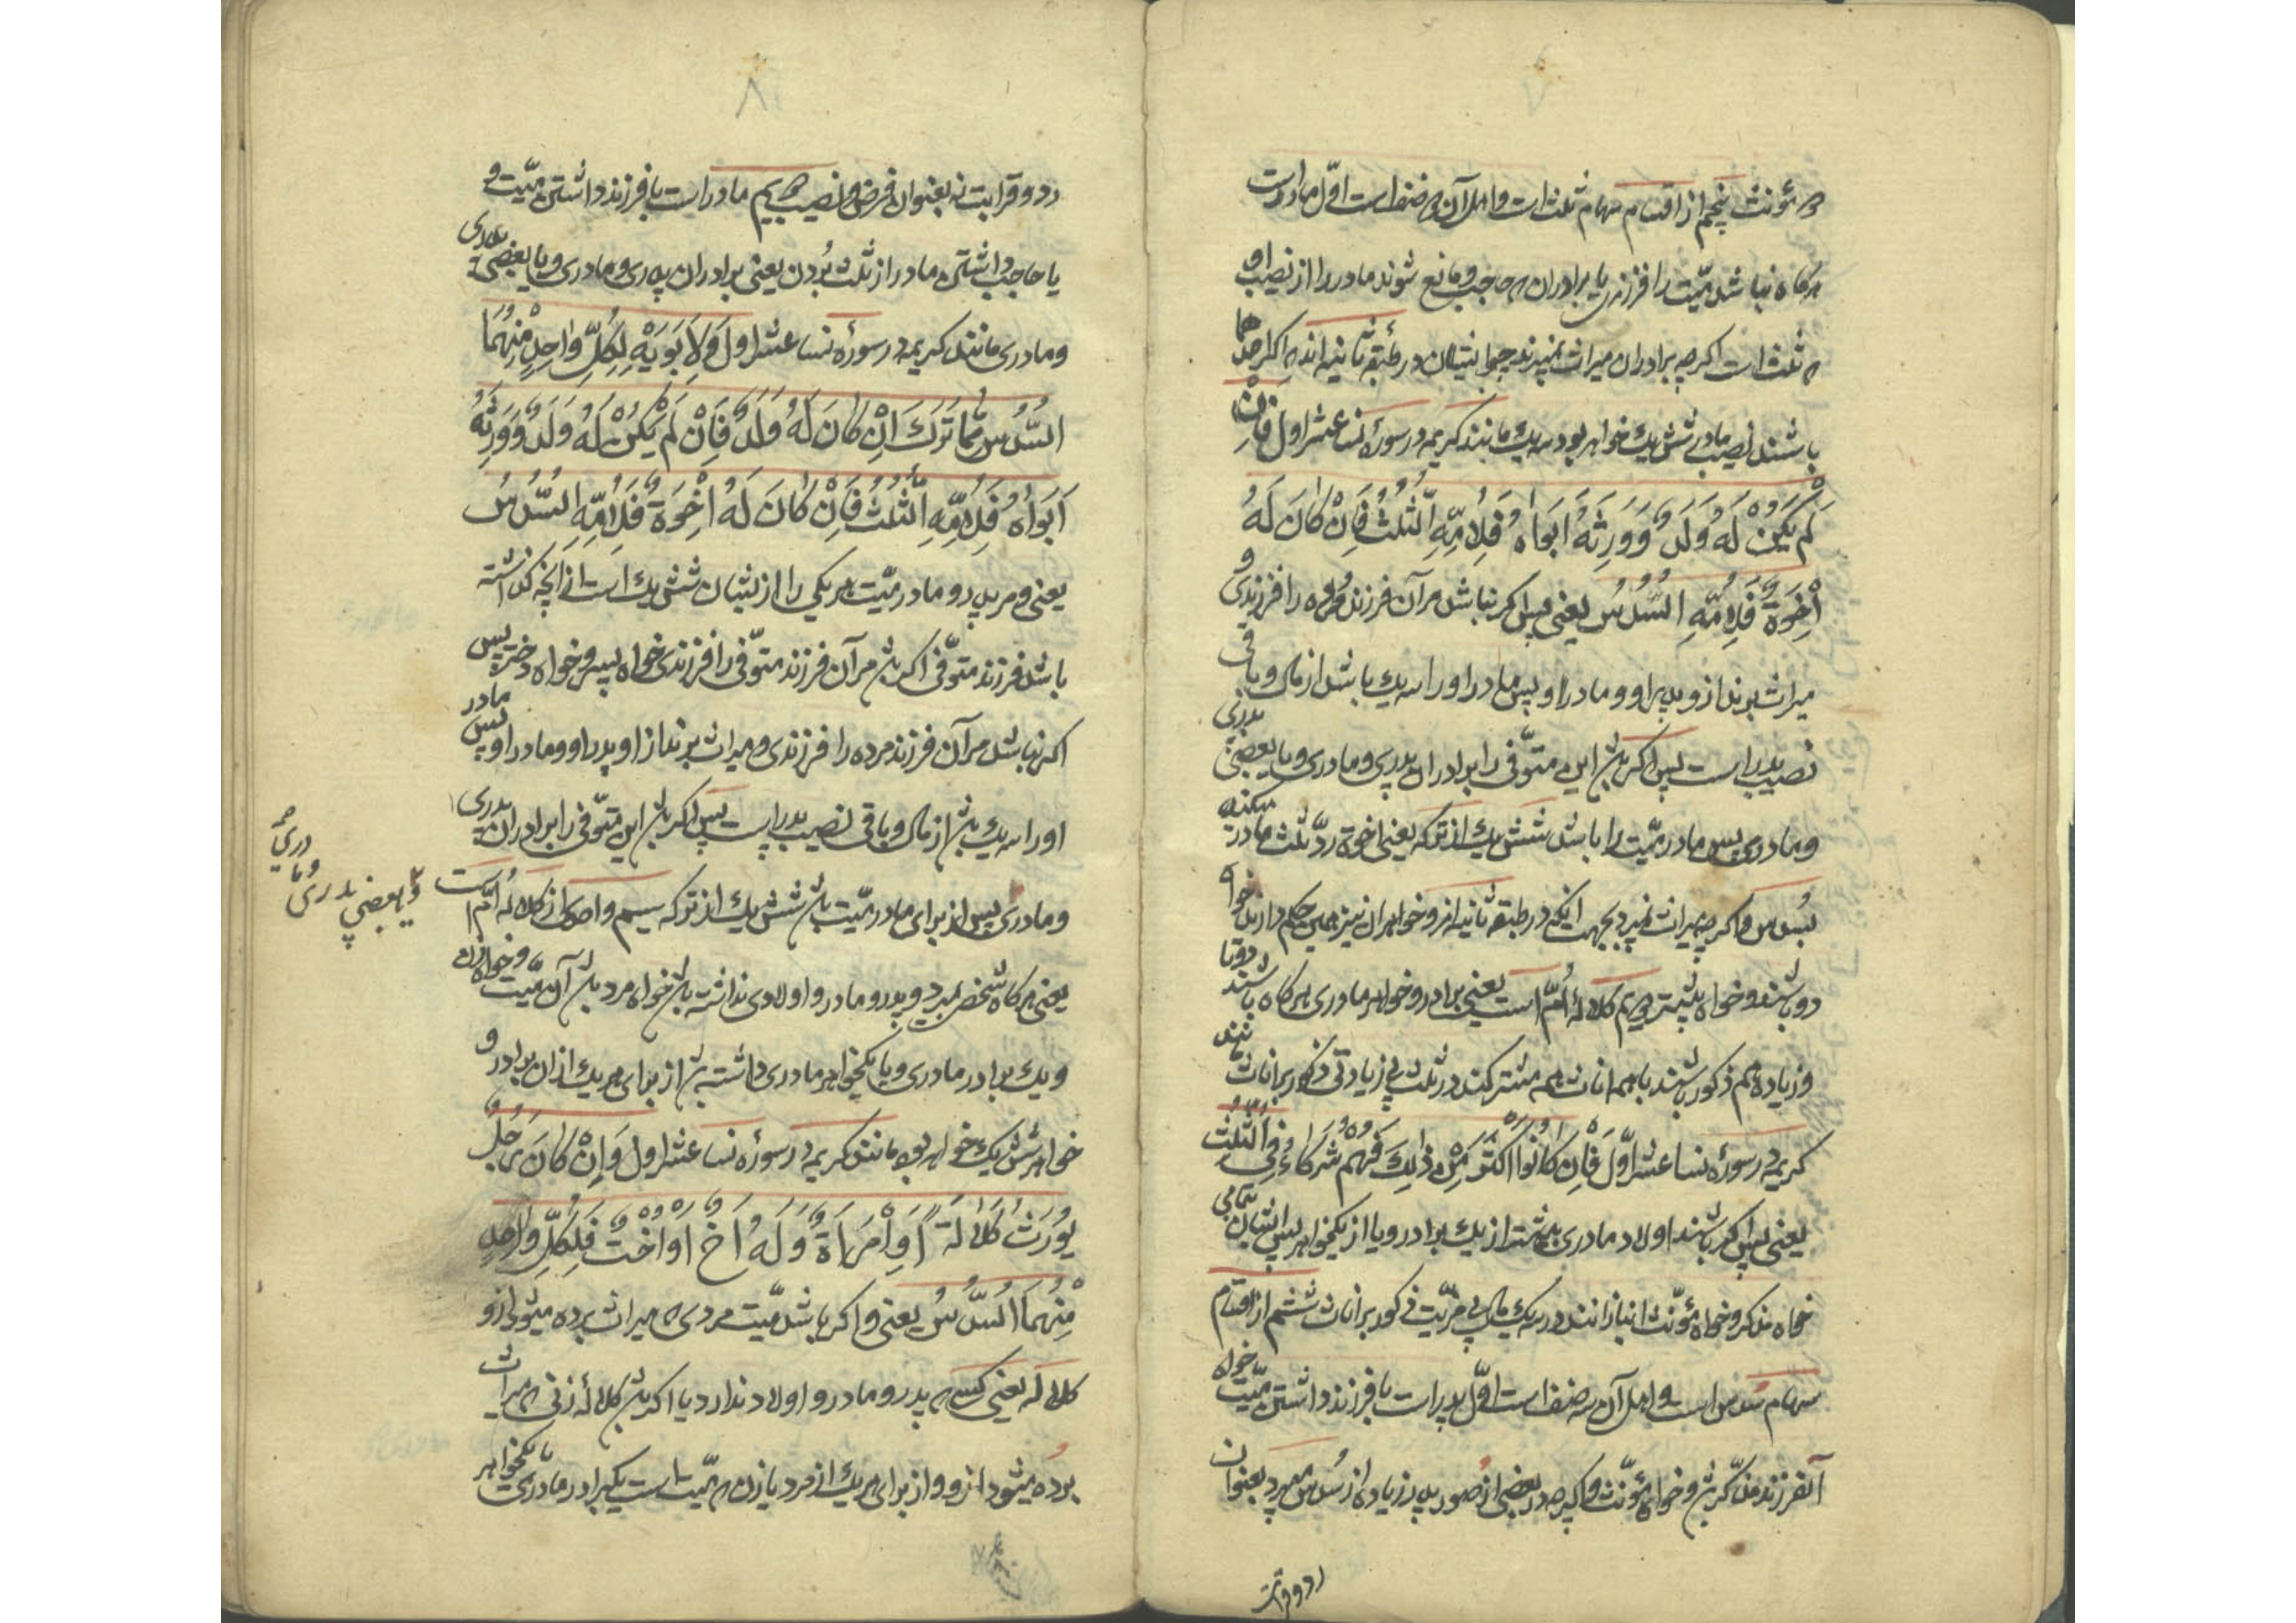 ۷
چه مؤنث پنجم از اقسام سهام ثلث است و اهل آن دو صنف است اوّل مادر است
هرگاه نباشد میّت را فرزندی یا برادران که حاجب و مانع شوند مادر را از نصیب او
که ثلث است اگرچه برادران میراث نمیبرند چو ایشان در طبقه ثانیه‌اند که اگر اینها
باشند نصیب مادر شش یک خواهد بود سه یک مانند کریمه در سورهٔ نسا عشر اول فَاِنْ
لَمْ یَکُنْ لَهُ وَلَدٌ وَوَرِثَهُ اَبَواهُ فَلِاُمِّهِ الثُّلُثُ فَاِنْ کانَ لَهُ
اِخْوَةٌ فَلِاُمِّهِ السُّدُسُ یعنی پس اگر نباشد مر آن فرزند مرده را فرزندی و
میراث برند از و پدر او و مادر او پس مادر او را سه یک باشد از مال و باقی
نصیب پدر است پس اگر باشد این متوّفی را برادران پدری و مادری و یا بعضی پدری
و مادری پس مادر میّت را باشد شش یک از ترکه یعنی اخوة ردّ ثلث مادر میکنند
بسُدس و اگرچه میراث نمیبرد بجهت اینکه در طبقه ثانیه‌اند و خواهران نیز همین حکم دارند خواه
دو باشند و خواه بیشتر دویم کلالهٔ اُمّ است یعنی برادر و خواهر مادری هرگاه باشند دو تا
و زیاده همه ذکور باشند یا همه اناث همه مشترکند در ثلث بی زیادتی ذکور بر اناث مانند
کریمه در سورهٔ نسا عشر اوّل فَاِن کانُوا اَکْثَرَ مِنْ ذلِکَ فَهُمْ شُرَکاءُ فِی الثُّلُثِ
یعنی پس اگر باشند اولاد مادری بیشتر از یک برادر و یا از یکخواهر پس ایشان تمامی
خواه مذکر و خواه مؤنّث انبازانند در سه یک مال بی مزیّت ذکور بر اناث ششم از اقسام
سهام سُدس است و اهل آن سه صنف است اوّل پدر است با فرزند داشتن میّت خواه
آنفرزند مذکّر باشد و خواه مؤنّث و اگرچه در بعضی از صور پدر زیاده از سُدس میبرد بعنوان
رد و قرابت
۸
رد و قرابت نه بعنوان فرض و نصیب دویم مادر است با فرزند داشتن میّت و
یا حاجب داشتن مادر از ثلث بُردن یعنی برادران پدری و مادری و یا بعضی پدری
و مادری مانند کریمه در سورهٔ نسا عشر اول وَلِاَبَوَیْهِ لِکُلِّ واحِدٍ مِنْهُمَا
السُّدُسُ مِمّا تَرَکَ اِنْ کانَ لَهُ وَلَدٌ فَاِنْ لَمْ یَکُنْ لَهُ وَلَدٌ وَوَرِثَهُ
اَبَواهُ فَلِاُمِّهِ الثُّلُثُ فَاِنْ کانَ لَهُ اِخْوَةٌ فَلِاُمِّهِ السُّدُسُ
یعنی و مر پدر و مادر میّت هر یکی را از ایشان شش یک است از آنچه گذاشته
باشد فرزند متوّفی اگر باشد مر آن فرزند متوّفی را فرزندی خواه پسر و خواه دختر پس
اگر نباشد مر آن فرزند مرده را فرزندی و میراث برند از او پدر او و مادر او پس مادر
او را سه یک باشد از مال و باقی نصیب پدر است پس اگر باشد این متوّفی را برادران پدری
و یا بعضی پدری و مادری
و مادری پس از برای مادر میّت باشد شش یک از ترکه سیم واحد از کلالهٔ اُمّ است
یعنی هرگاه شخص بمیرد و پدر و مادر و اولادی نداشته باشد خواه مرد باشد آن میّت و خواه زن
و یک برادر مادری و یا یکخواهر مادری داشته باشد از برای هر یک از ان برادر و
خواهر شش یک خواهد بود مانند کریمه در سورهٔ نسا عشر اول وَاِنْ کانَ رَجُلٌ
یُورَثُ کَلالَةً اَوِ امْرَاَةٌ وَلَهُ اَخٌ اَوْ اُخْتٌ فَلِکُلِّ واحِدٍ
مِنْهُمَا السُّدُسُ یعنی و اگر باشد میّت مردی که میراث برده میشود از و
کلاله یعنی کسی که پدر و مادر و اولاد ندارد یا اگر باشد کلاله زنی که میراث
برده میشود از و و از برای هر یک از مرد یا زن که میّت است یکبرادر مادری یا یکخواهر